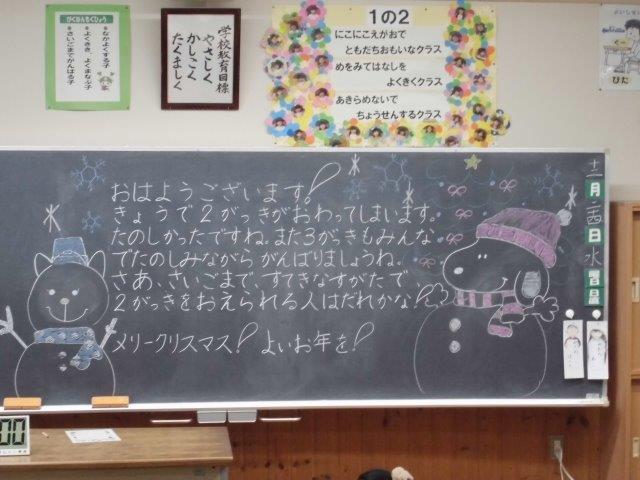 がくねんもくひょう
・なかよくする子
・よくきき、よくまなぶ子
・さいごまでがんばる子
学校教育目標
やさしく
かしこく
たくましく
1の2
にこにこえがおで
ともだちおもいなクラス
めをみてはなしを
よくきくクラス
あきらめないで
ちょうせんするクラス
ぴた
おはようございます!
きょうで2がっきがおわってしまいます。
たのしかったですね。また3がっきもみんな
でたのしみながらがんばりましょうね。
さあ、さいごまで、すてきなすがたで、
2がっきをおえられる人はだれかな!
メリークリスマス! よいお年を!
十二月
日
水
曜日
00